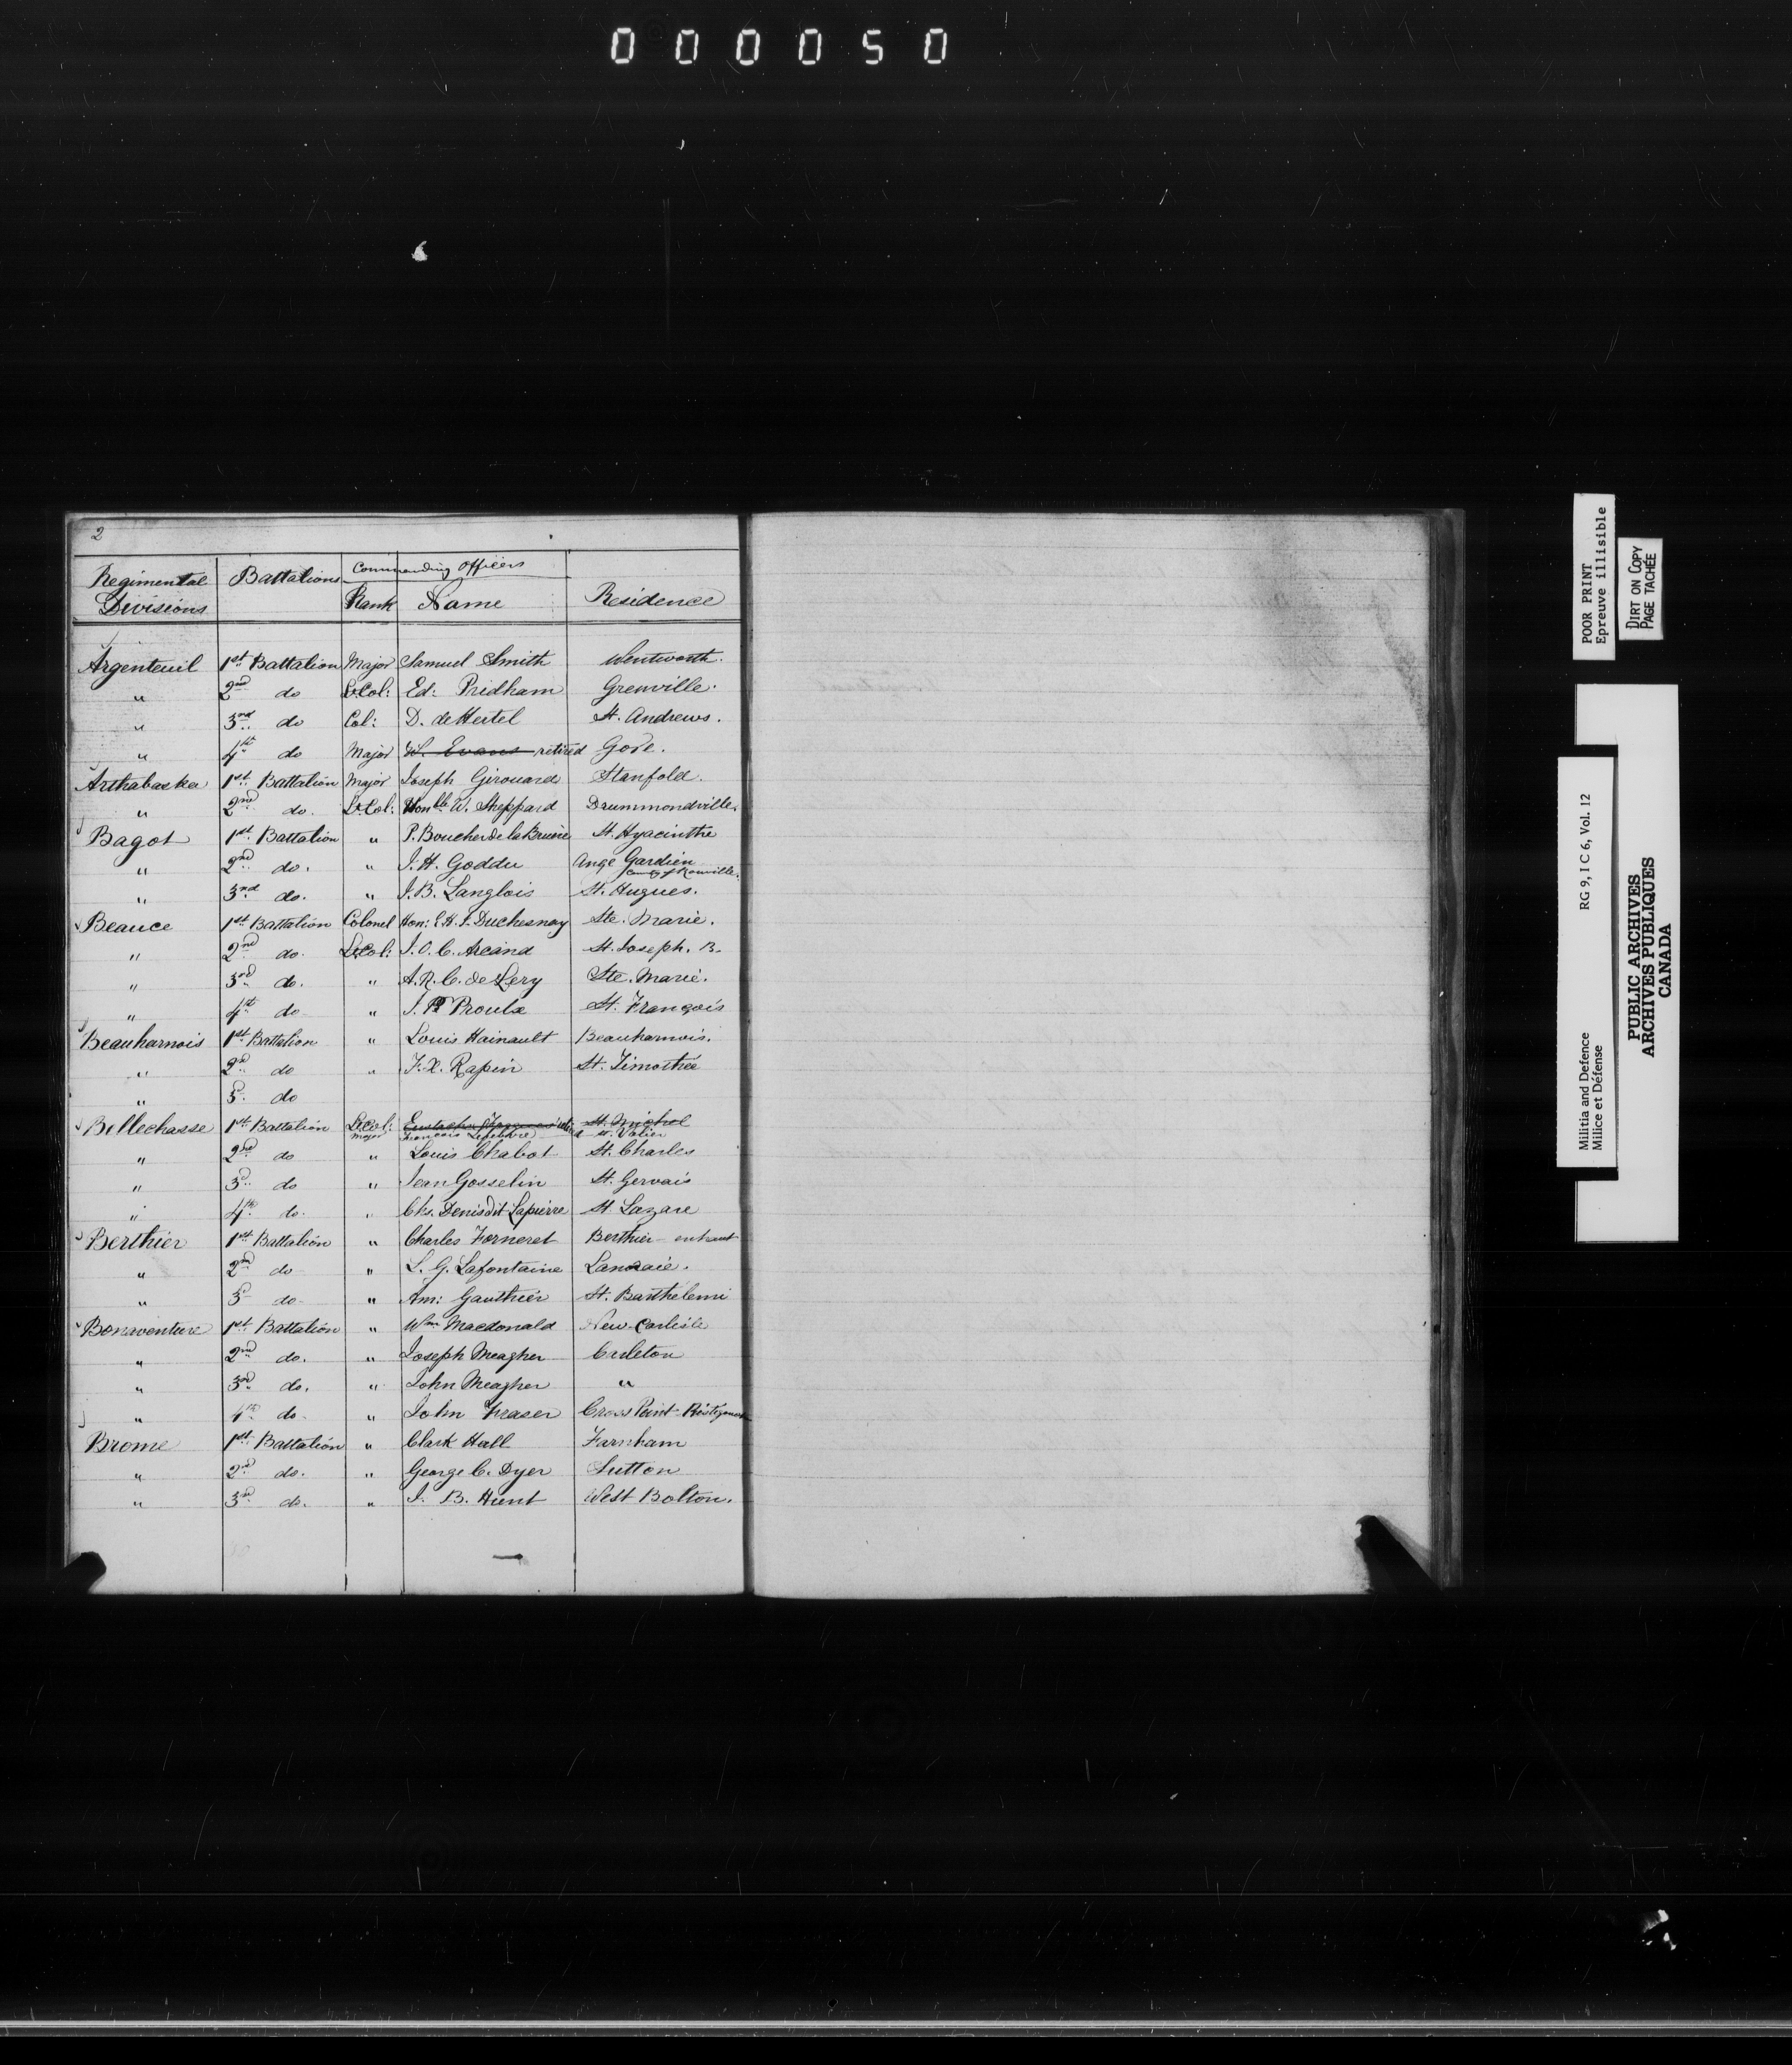 000050
2
Regimental Divisions Battalions Commanding Officers
Rank Name Residence
Argenteuil 1st Battalion Major Samuel Smith Wentworth.
" 2nd do Lt Col: Ed: Pridham Grenville.
" 3rd do Col: D. de Hertel St. Andrews.
" 4th do Major W. Evans retired Gore.
Arthabaska 1st Battalion Major Joseph Girouard Stanfold.
" 2nd do. Lt Col: Honble W. Sheppard Drummondville.
Bagot 1st Battalion " P. Boucher de la Bruère St. Hyacinthe
" 2nd do. " J. H. Goddu Ange Gardien
County of Rouville.
" 3rd do. " J. B. Langlois St. Hugues.
Beauce 1st Battalion Colonel Hon: E. H. J. Duchesnay Ste. Marie.
" 2nd do. Lt Col: J. O. C. Arcand St. Joseph. B.
" 3rd do. " A. R. C. de Lery Ste. Marie.
" 4th do " J. P. Proulx St. François
Beauharnois 1st Battalion " Louis Hainault Beauharnois.
" 2d do " F. X. Rapin St. Timothée
" 3d do
Bellechasse 1st Battalion Lt Col: St. Michel
Major François Lefebvre St. Valier
" 2nd do " Louis Chabot St. Charles
" 3d do " Jean Gosselin St. Gervais
" 4th do. " Chs. Denis dit Lapierre St Lazare
Berthier 1st Battalion " Charles Forneret Berthier - enhaut
" 2nd do " L. G. Lafontaine Lanoraie.
" 3d do " Am: Gauthier St. Barthélemi
Bonaventure 1st Battalion " Wm Macdonald New-Carlisle
" 2nd do. " Joseph Meagher Carleton
" 3rd do. " John Meagher "
" 4th do. " John Fraser Cross Point - Ristigouche
Brome 1st Battalion " Clark Hall Farnham
" 2nd do. " George C. Dyer Sutton
" 3rd do. " J. B. Hunt West Bolton.
POOR PRINT
Epreuve illisible
DIRT ON COPY
PAGE TACHÉE
Militia and Defence RG 9, I C 6, Vol. 12
Milice et Défense
PUBLIC ARCHIVES
ARCHIVES PUBLIQUES
CANADA